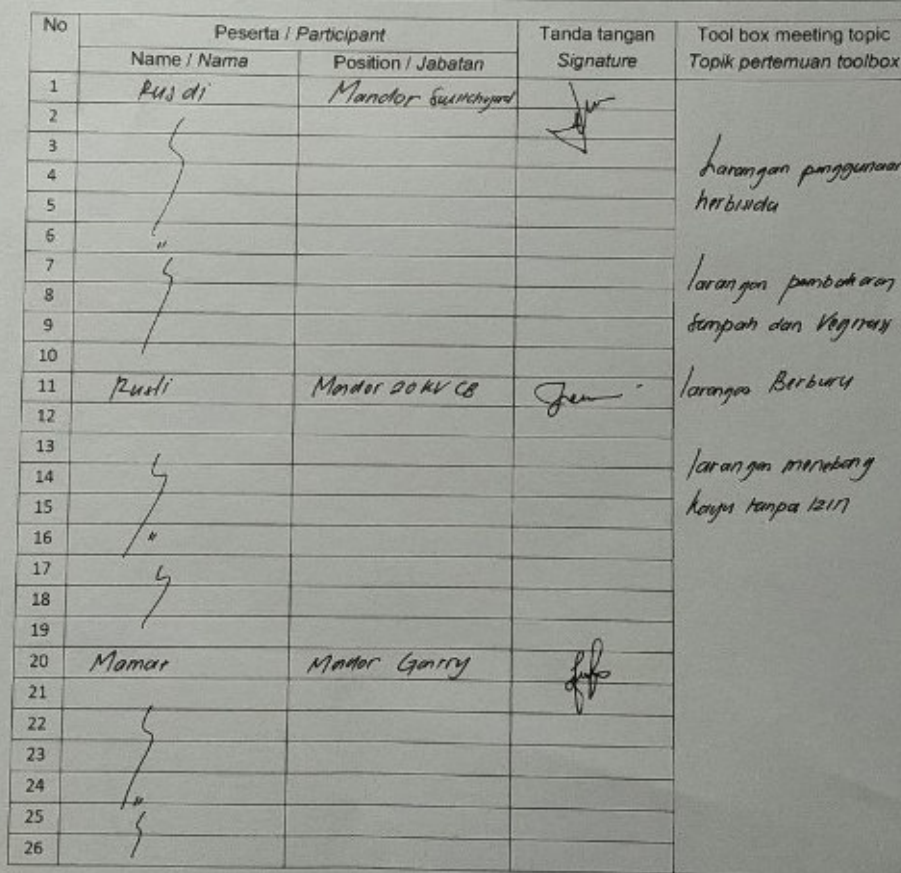 No
Peserta / Participant
Tanda tangan
Signature
Tool box meeting topic
Topik pertemuan toolbox
Name / Nama
Position / Jabatan
1 Rusdi Mandor Switchyard
2
3
larangan penggunaan
4
5
herbisida
6 "
7
larangan pembakaran
8
9
sampah dan
10
11 Rusli Mandor 20 KV CB larangan Berburu
12
13
14
larangan menebang
15
kayu tanpa izin
16 "
17
18
19
20 Mandor
21
22
23
24 "
25
26